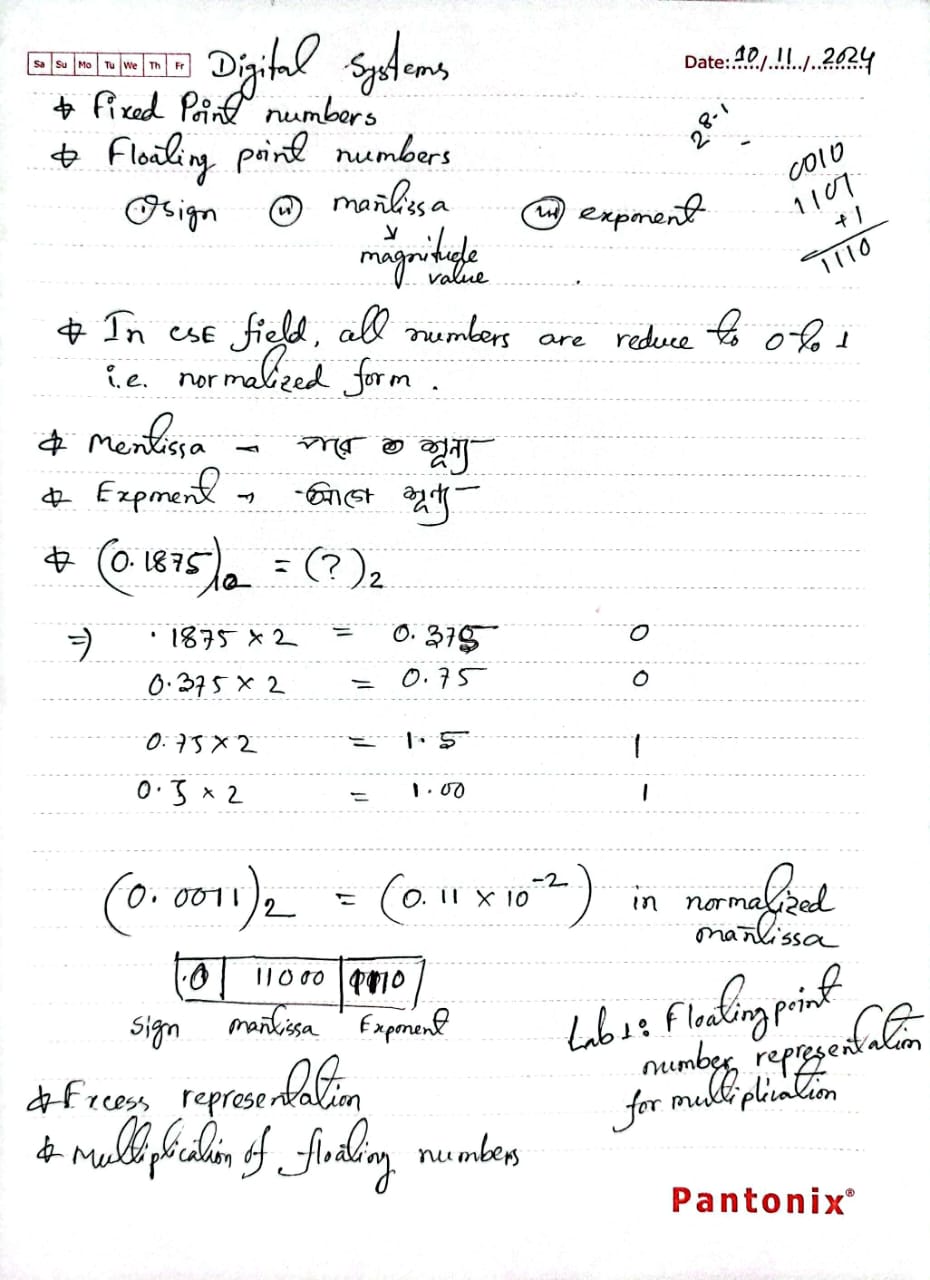 Sa Su Mo Tu We Th Fr Digital Systems Date: 10/11/2024
Fixed Point numbers
Floating point numbers
2^8-1 -
0010
1101
+1
1110
(i) sign (ii) mantissa (iii) exponent
magnitude
value
In CSE field, all numbers are reduce to 0 to 1
i.e. normalized form.
Mentissa → পরে শূন্য
Expment → আগে শূন্য
(0.1875)10 = (?)2
⇒ .1875 × 2 = 0.375 0
0.375 × 2 = 0.75 0
0.75 × 2 = 1.5 1
0.5 × 2 = 1.00 1
(0.0011)2 = (0.11 × 10^-2) in normalized
mantissa
.0 11000 1110
sign mantissa Exponent
Lab 1: Floating point
number representation
for multiplication
Excess representation
Multiplication of floating numbers
Pantonix®